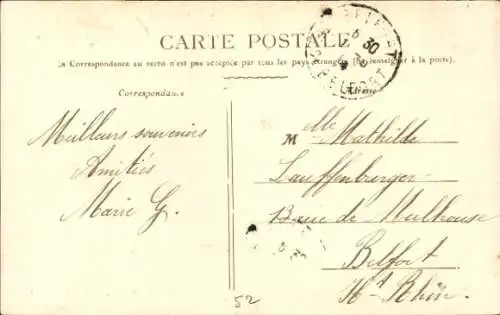 CARTE POSTALE
La Correspondance au recto n'est pas acceptée par tous les pays étrangers (Se renseigner à la poste).
Correspondance
Adresse
BELFORT
BELFORT
6 30
Meilleurs souvenirs
Amitiés
Marie G.
Mlle Mathilde
Lauffenburger
13 rue de Mulhouse
Belfort
Ht-Rhin
52